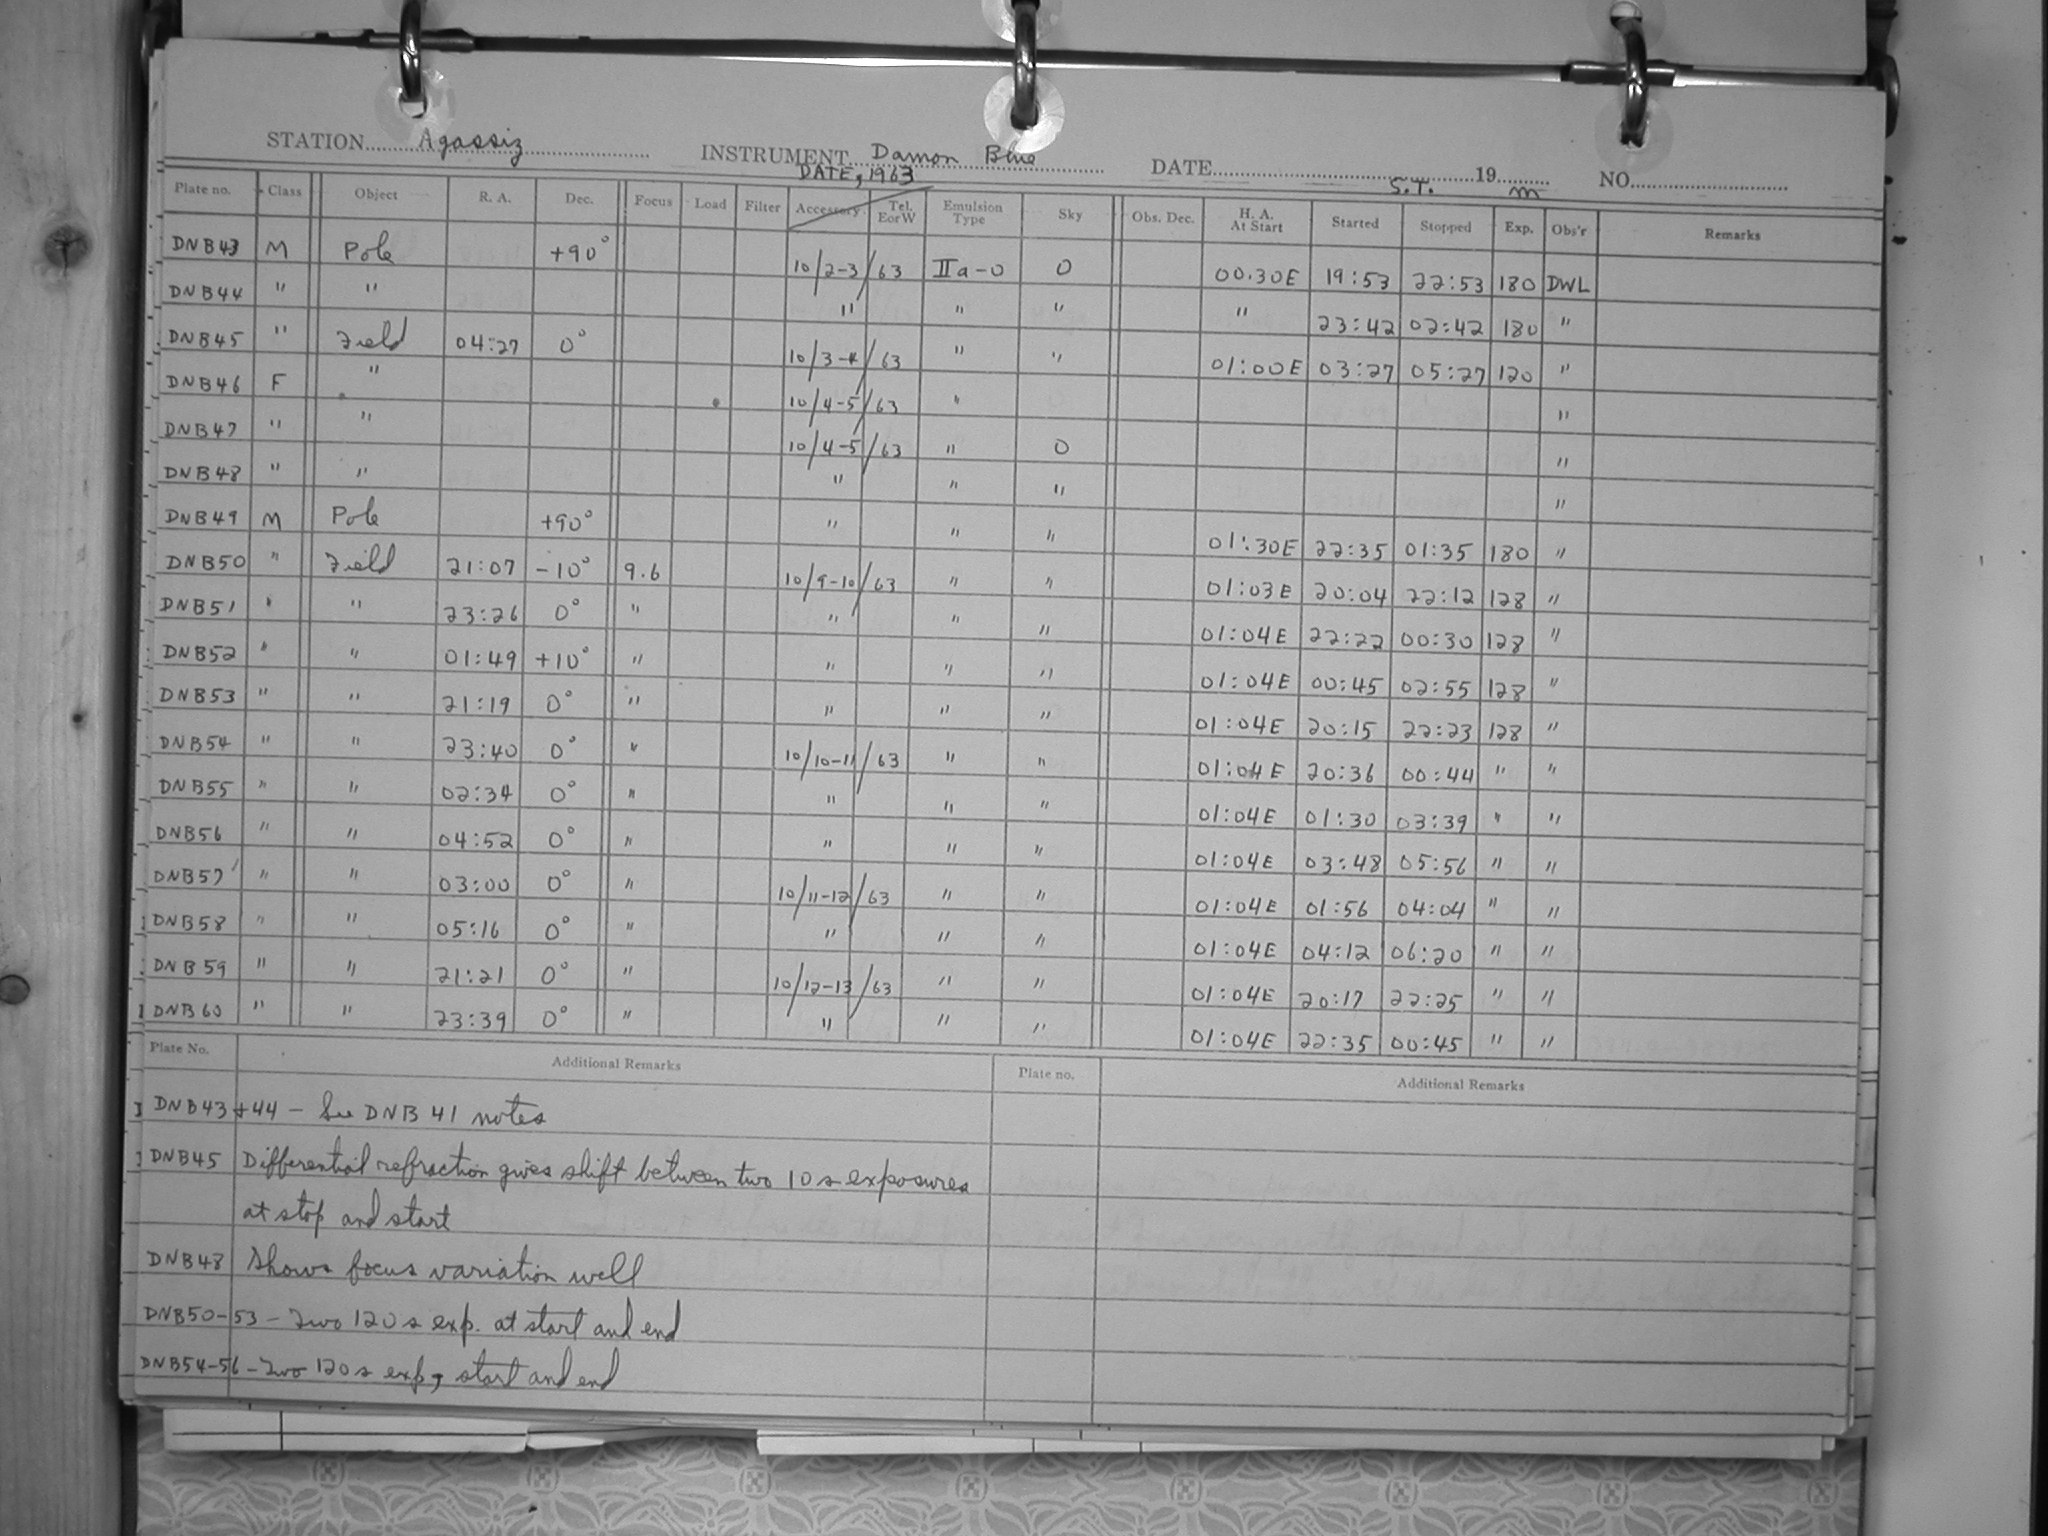 STATION Agassiz INSTRUMENT Damon Blue DATE 19 NO.
DATE, 1963 S.T. m
Plate no. Class Object R. A. Dec. Focus Load Filter Accessory Tel. E or W Emulsion Type Sky Obs. Dec. H. A. At Start Started Stopped Exp. Obs'r Remarks
DNB43 M Pole +90° 10/2-3/63 IIa-O 0 00.30E 19:53 22:53 180 DWL
DNB44 " " " " " " 23:42 02:42 180 "
DNB45 " Field 04:27 0° 10/3-4/63 " " 01:00E 03:27 05:27 120 "
DNB46 F " 10/4-5/63 " "
DNB47 " " 10/4-5/63 " 0 "
DNB48 " " " " " "
DNB49 M Pole +90° " " " 01:30E 22:35 01:35 180 "
DNB50 " Field 21:07 -10° 9.6 10/9-10/63 " " 01:03E 20:04 22:12 128 "
DNB51 " " 23:26 0° " " " " 01:04E 22:22 00:30 128 "
DNB52 " " 01:49 +10° " " " " 01:04E 00:45 02:55 128 "
DNB53 " " 21:19 0° " " " " 01:04E 20:15 22:23 128 "
DNB54 " " 23:40 0° " 10/10-11/63 " " 01:04E 20:36 00:44 " "
DNB55 " " 02:34 0° " " " " 01:04E 01:30 03:39 " "
DNB56 " " 04:52 0° " " " " 01:04E 03:48 05:56 " "
DNB57 " " 03:00 0° " 10/11-12/63 " " 01:04E 01:56 04:04 " "
DNB58 " " 05:16 0° " " " " 01:04E 04:12 06:20 " "
DNB59 " " 21:21 0° " 10/12-13/63 " " 01:04E 20:17 22:25 " "
DNB60 " " 23:39 0° " " " " 01:04E 22:35 00:45 " "
Plate No. Additional Remarks Plate no. Additional Remarks
DNB43+44 - See DNB 41 notes
DNB45 Differential refraction gives shift between two 10s exposures
at stop and start
DNB48 Shows focus variation well
DNB50-53 - Two 120s exp. at start and end
DNB54-56 - Two 120s exp, start and end